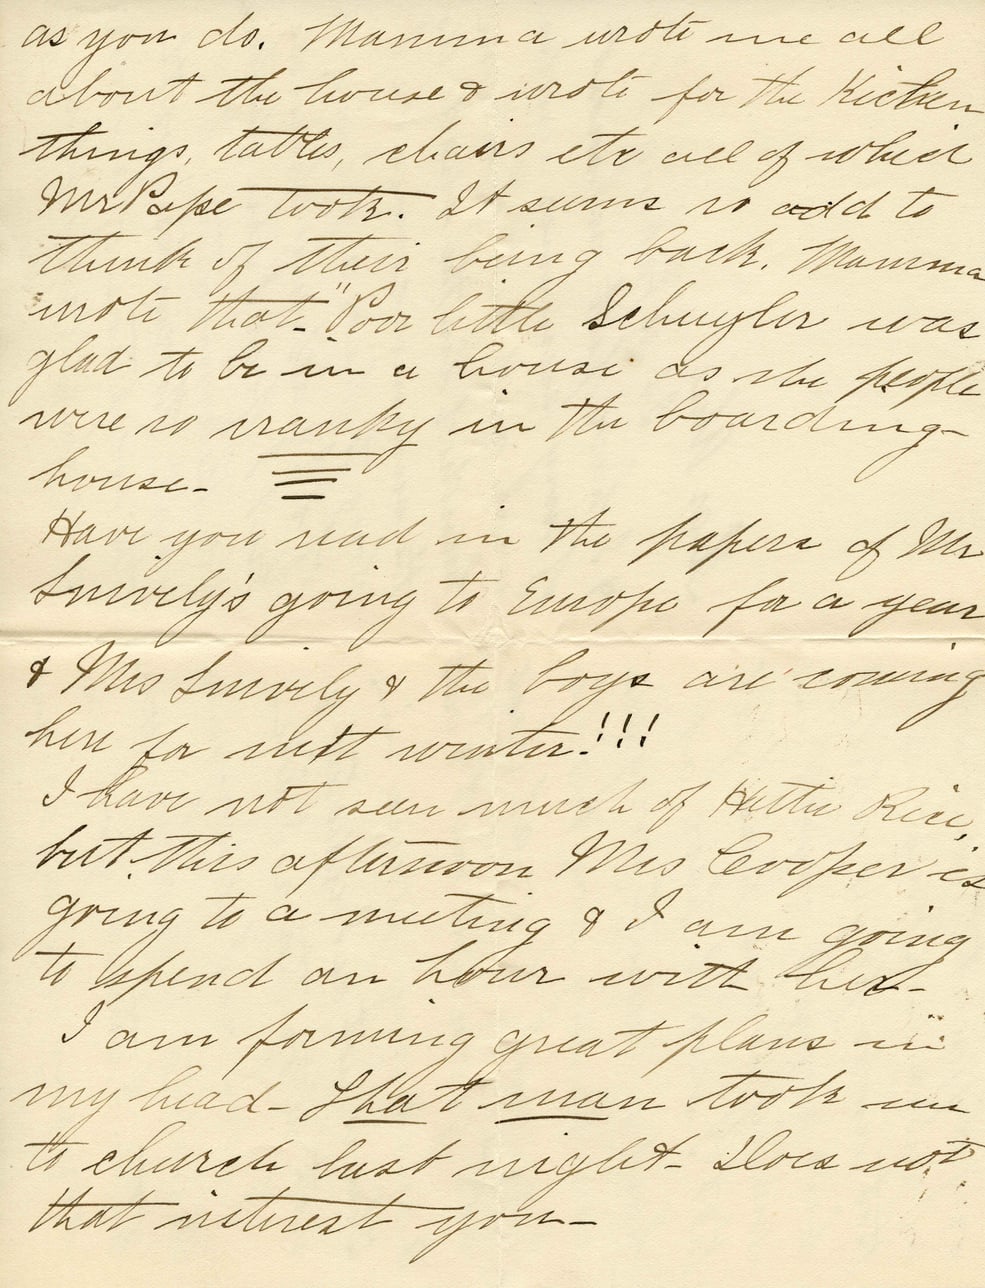 as you do. Mamma wrote me all
about the house & wrote for the Kitchen
things, tables, chairs etc all of which
Mr Pape took. It seems so odd to
think of their being back. Mamma
wrote that - "Poor little Schuyler was
glad to be in a house as the people
were so cranky in the boarding-
house -
Have you read in the papers of Mr
Snively's going to Europe for a year
& Mrs Snively & the boys are coming
here for next winter!!!
I have not seen much of Hattie Rice,
but this afternoon Mrs Cooper is
going to a meeting & I am going
to spend an hour with her -
I am forming great plans in
my head - That man took me
to church last night - Does not
that interest you -